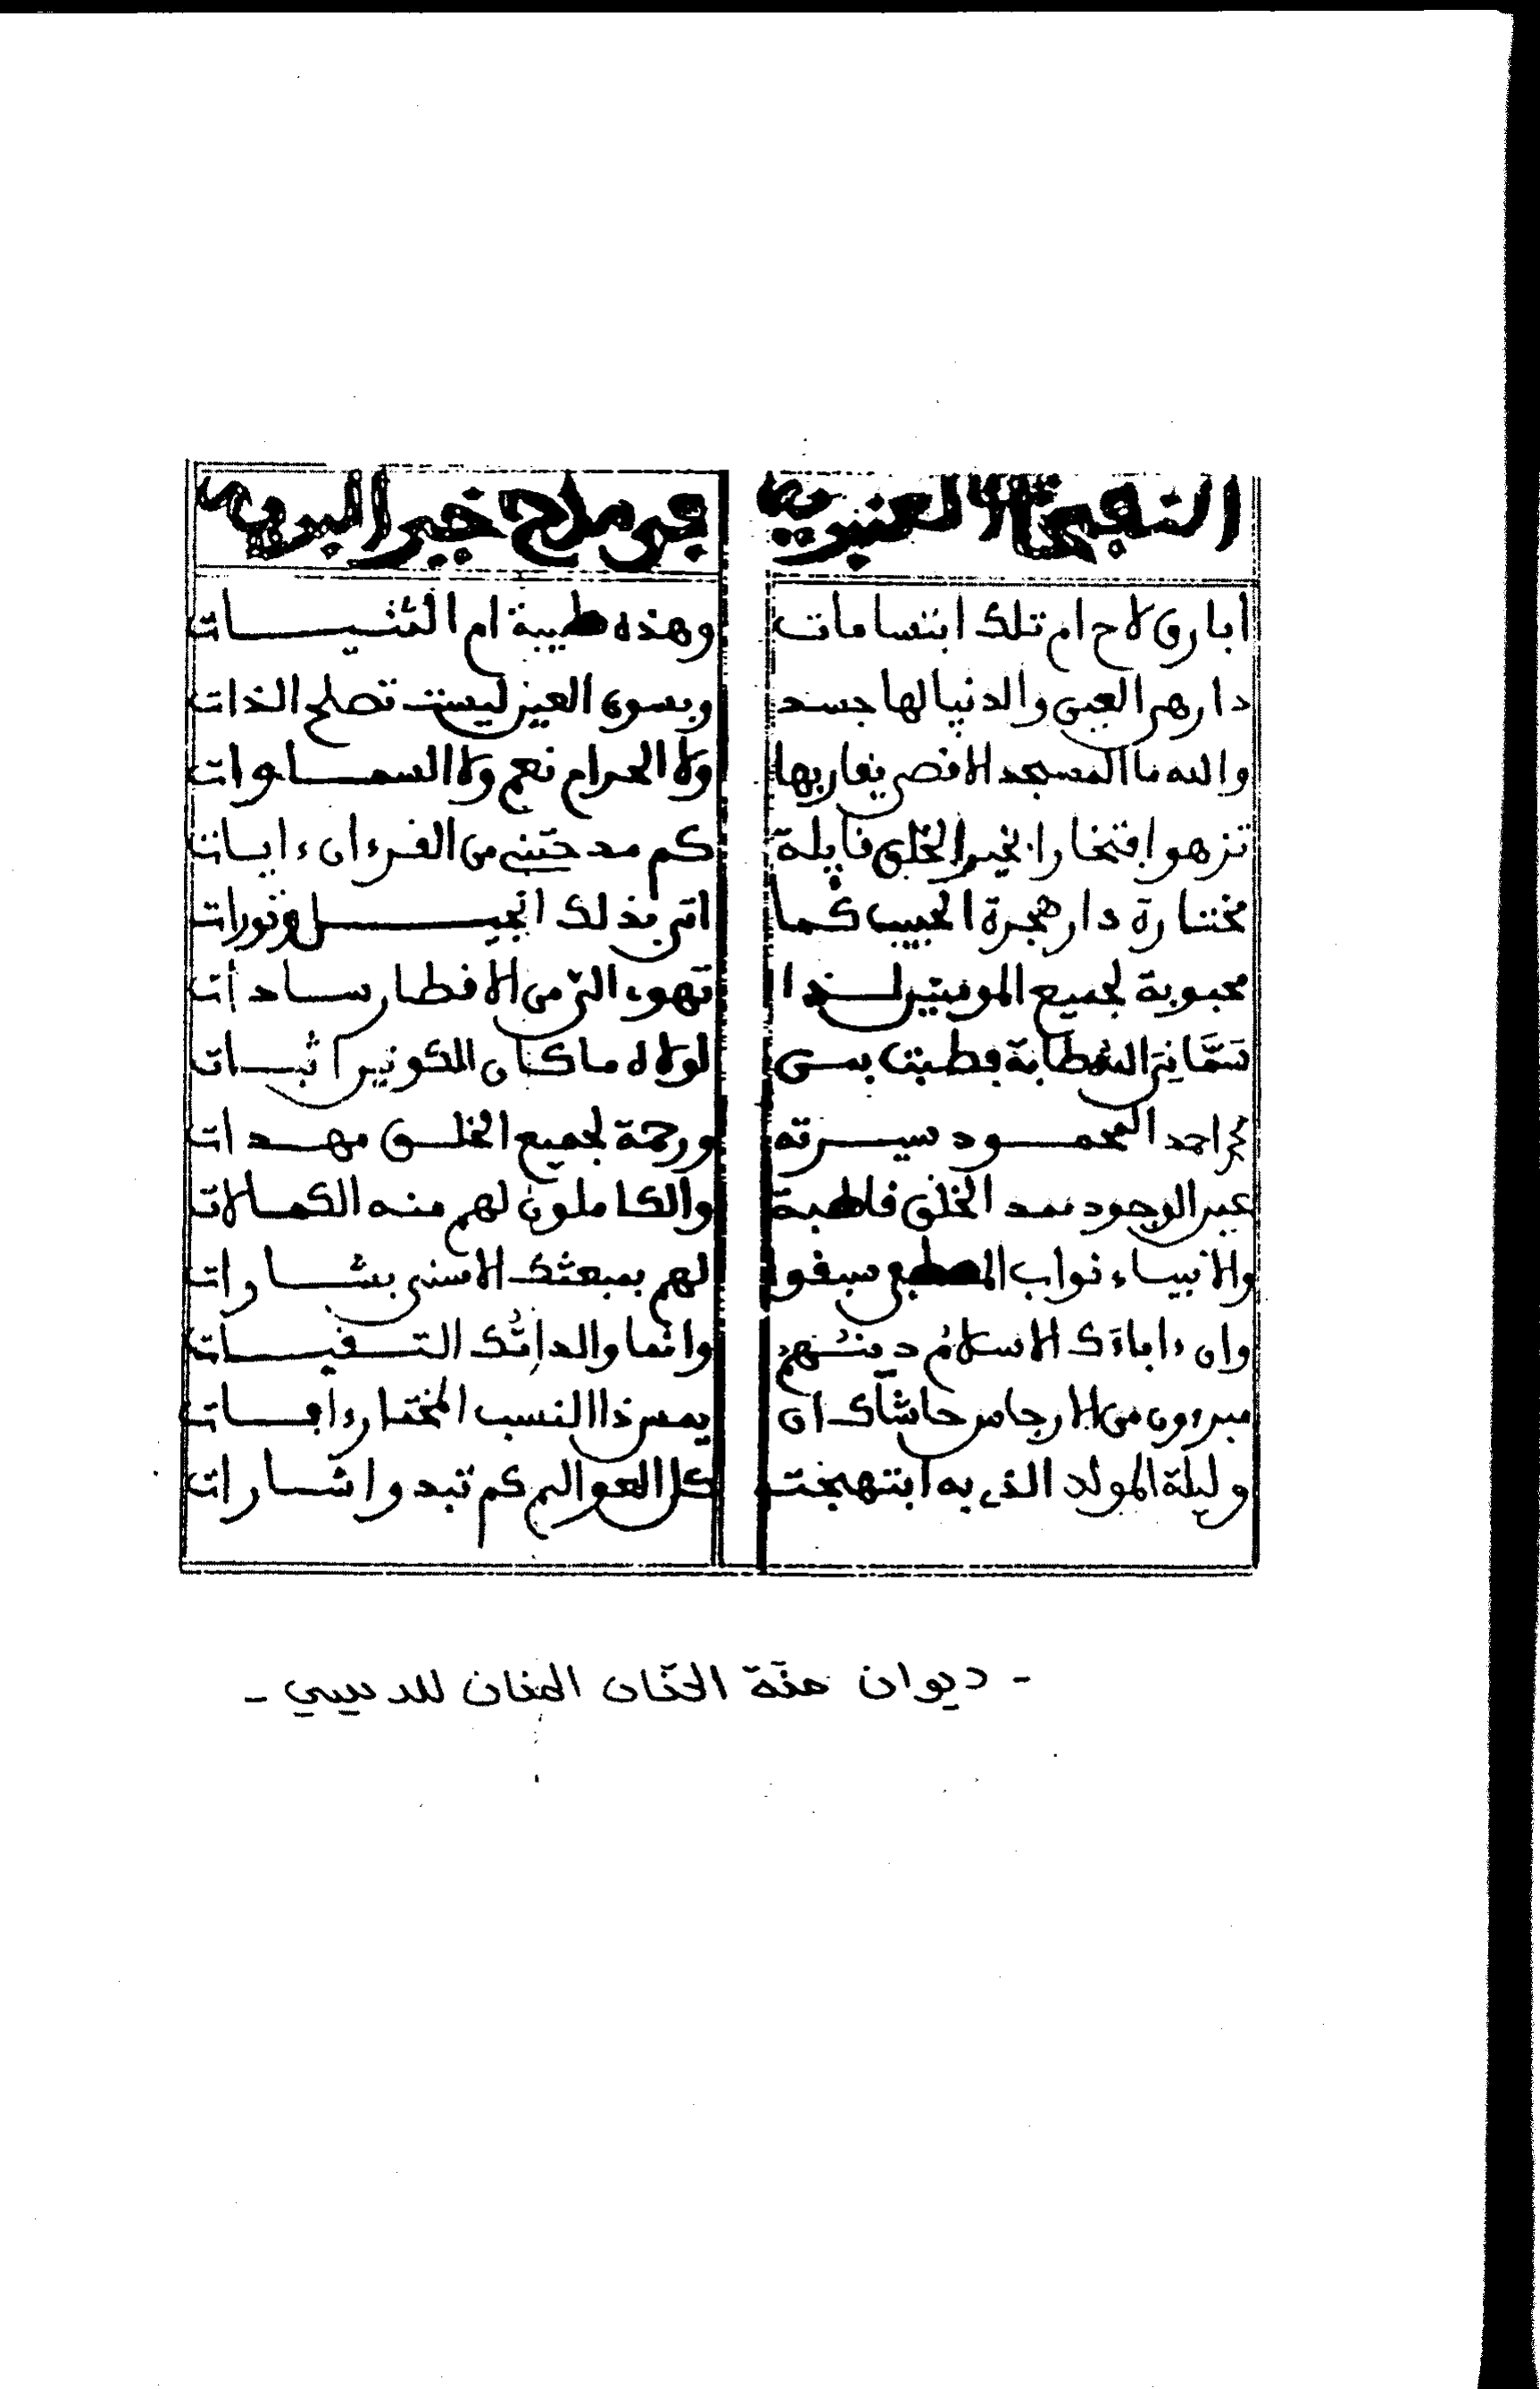 النفحة العنبرية في مدح خير البرية
ابارق لاح ام تلك ابتسامات وهذه طيبة ام الثنيات
دار هي العين والدنيا لها جسد وبسوى العين ليست تصلح الذات
والله ما المسجد الاقصى يقاربها ولا الحرام نعم ولا السماوات
تزهو افتخارا بخير الخلق قايلة كم مدحتني من القرءان ءايات
مختارة دار هجرة الحبيب كما اتى بذلك انجيل وتورات
محبوبة لجميع المومنين لذا تهوي التي من الاقطار سادات
سماني الله طابة فطبت بمن لولاه ما كان للكونين اثبات
محمد احمد المحمود سيرته ورحمة لجميع الخلق مهدات
عين الوجود ممد الخلق قاطبة والكاملون لهم منه الكمالات
والانبياء نواب المصطفى سبقوا لهم بمبعثك الاسنى بشارات
وان ءاباءك الاسلام دينهم وانما والداتك التقيات
مبرءون من الارجاس حاشاك ان يمس ذا النسب المختار ءافات
وليلة المولد الذي به ابتهجت كل العوالم كم تبدو اشارات
- ديوان منة الحنان المنان للدسيسي -